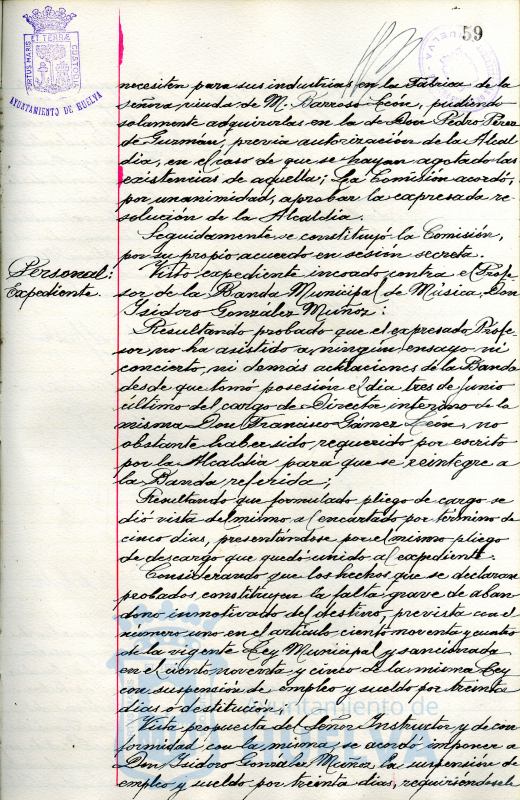 59
PORTUS MARIS ET TERRÆ CUSTODIA
AYUNTAMIENTO DE HUELVA
necesiten para sus industrias en la Fábrica de la
señora viuda de M. Barroso León, pudiendo
solamente adquirirlas en la de Don Pedro Pérez
de Guzmán, previa autorización de la Alcal
día, en el caso de que se hayan agotado las
existencias de aquella; La Comisión acordó,
por unanimidad, aprobar la expresada re
solución de la Alcaldía.
Seguidamente se constituyó la Comisión,
por su propio acuerdo en sesión secreta.
Personal:
Expediente.
Visto expediente incoado contra el Profe
sor de la Banda Municipal de Música, Don
Isidoro González Muñoz:
Resultando probado que el expresado Profe
sor, no ha asistido a ningún ensayo ni
concierto, ni demás actuaciones de la Banda
desde que tomó posesión el día tres de Junio
último del cargo de Director interino de la
misma Don Francisco Gámez León, no
obstante haber sido requerido por escrito
por la Alcaldía para que se reintegre a
la Banda referida;
Resultando que formulado pliego de cargo se
dió vista del mismo al encartado por término de
cinco días, presentándose por el mismo pliego
de descargo que quedó unido al expediente.
Considerando que los hechos que se declaran
probados constituyen la falta grave de aban
dono inmotivado del destino, prevista con el
número uno en el artículo ciento noventa y cuatro
de la vigente Ley Municipal y sancionada
en el ciento noventa y cinco de la misma Ley
con suspensión de empleo y sueldo por treinta
días o destitución;
Vista propuesta del Señor Instructor y de con
formidad con la misma, se acordó imponer a
Don Isidoro González Muñoz la suspensión de
empleo y sueldo por treinta días, requiriéndosele
Ayuntamiento de
HUELVA